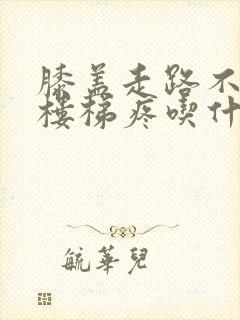 膝盖走路不
楼梯疼喫什
毓華兒